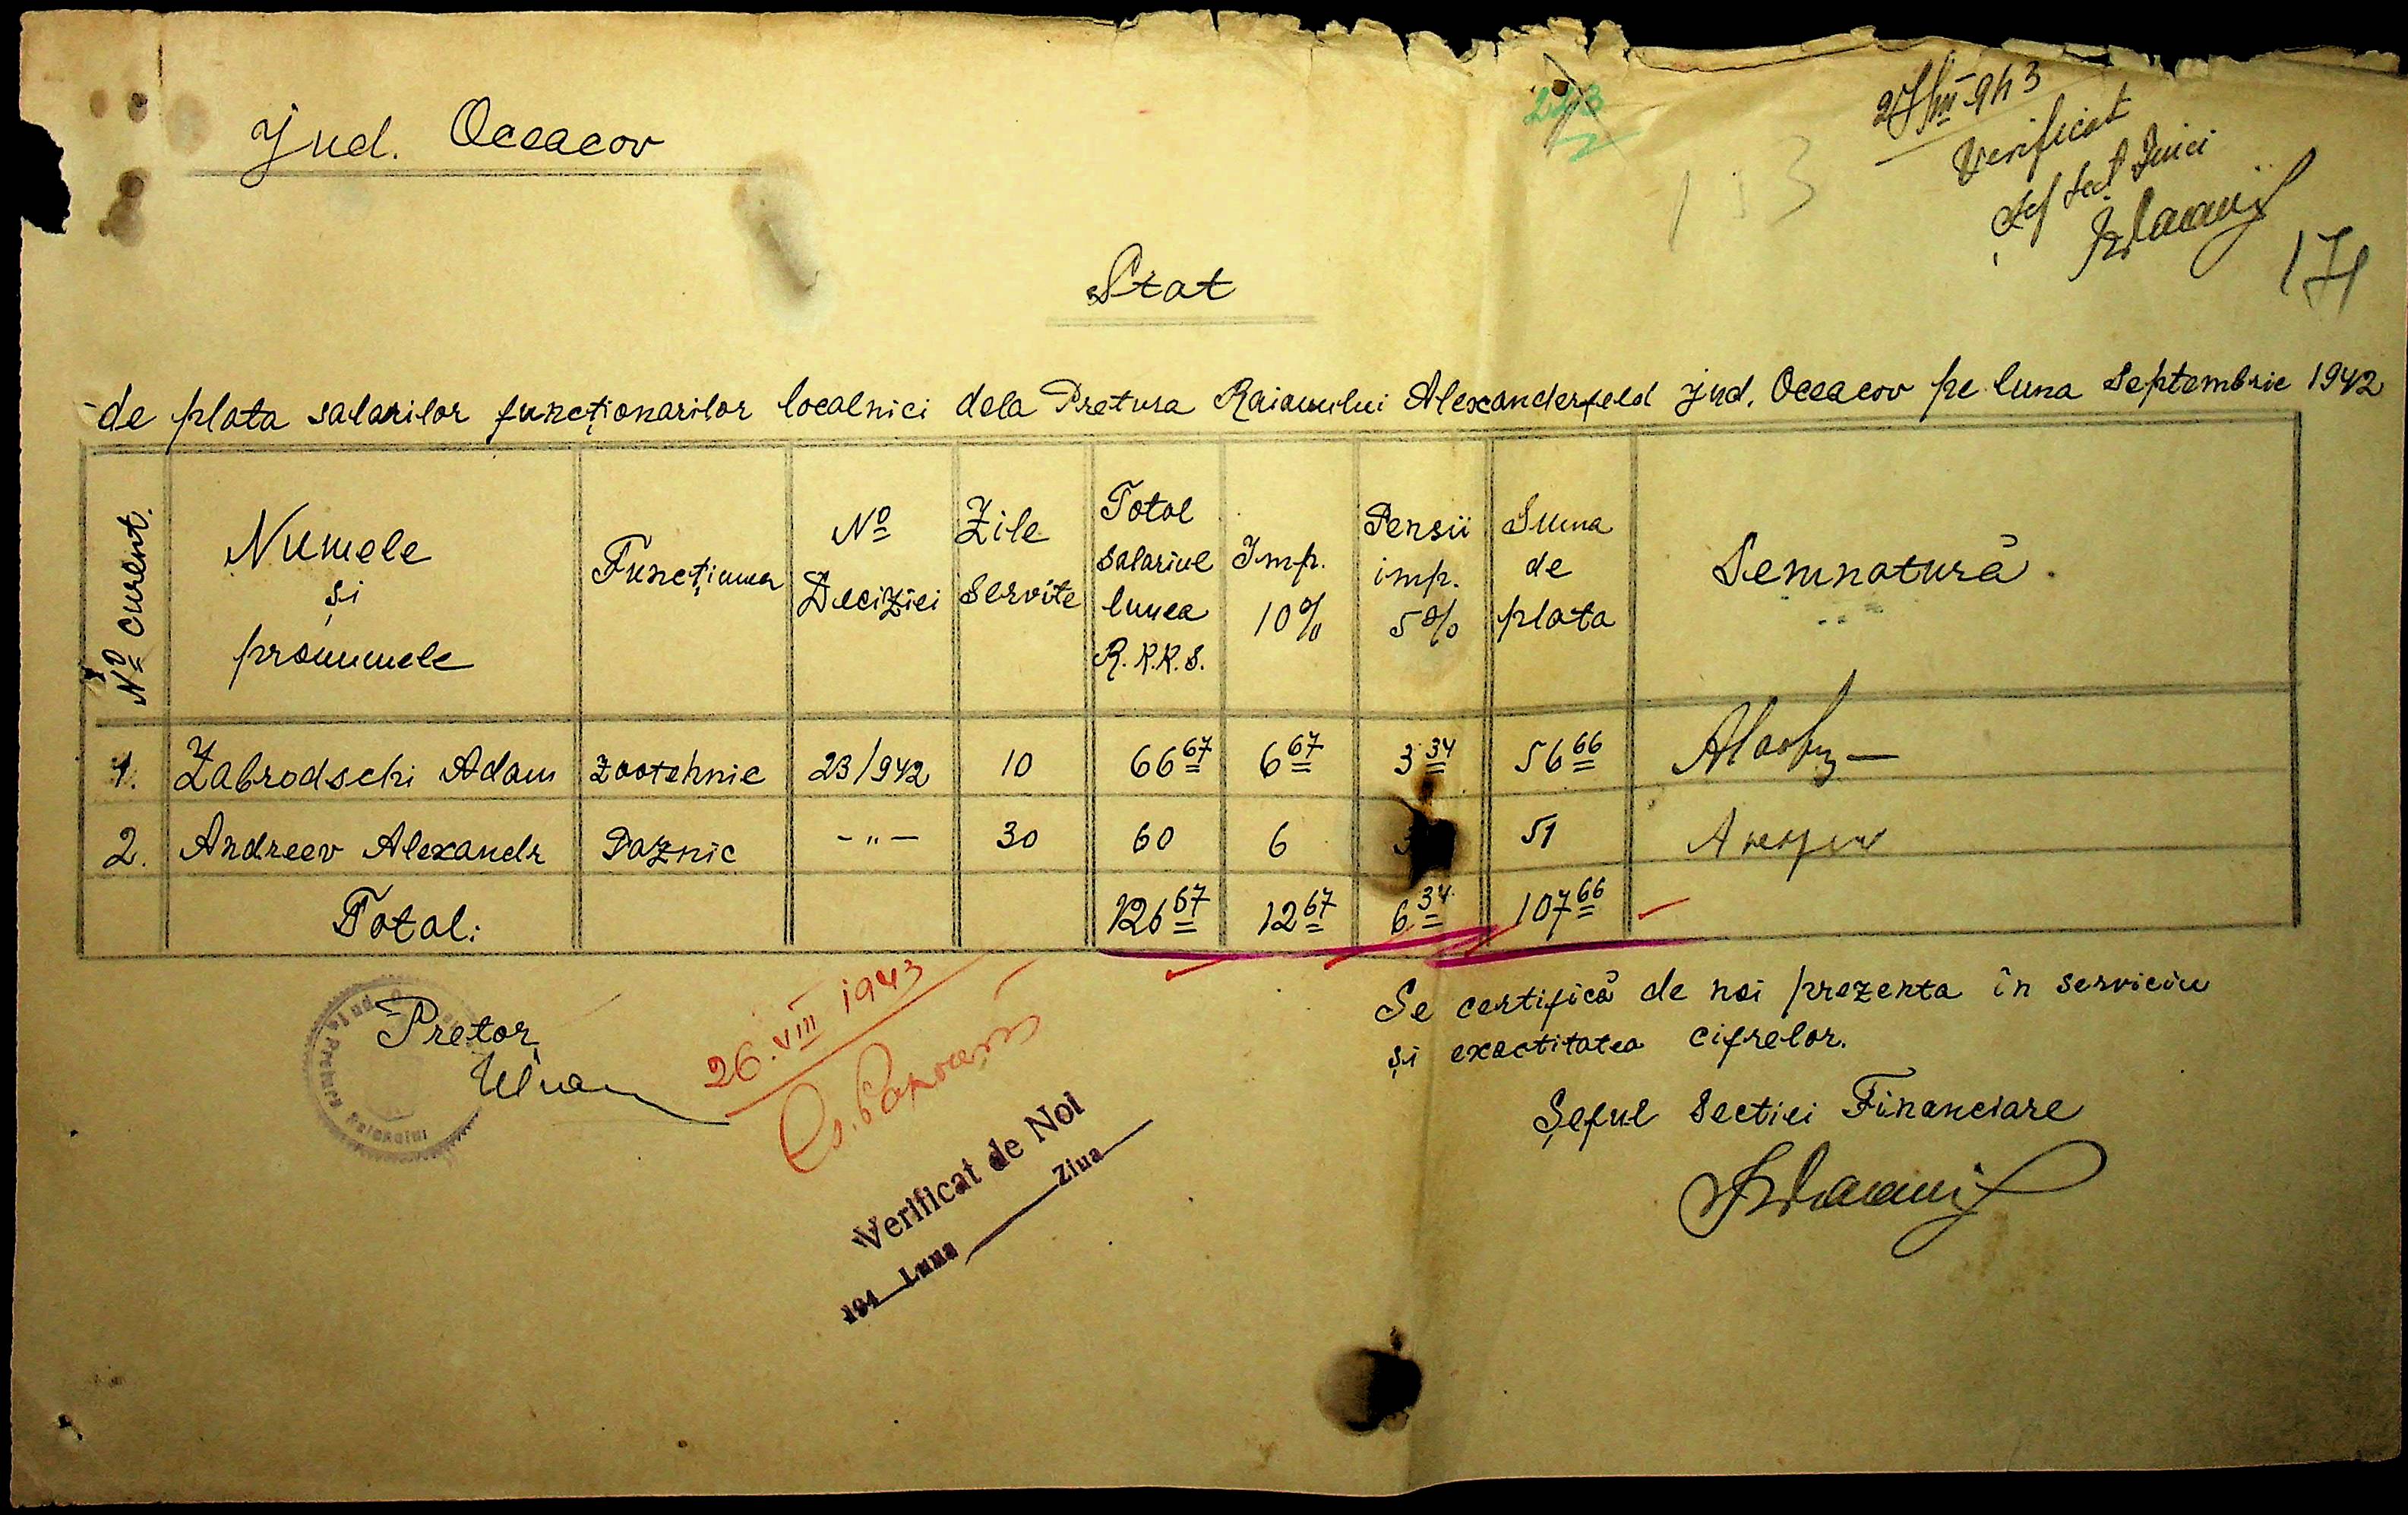 Jud. Oceacov
943
Verificat
171
Stat
de plata salarilor funcționarilor localnici dela Pretura Raionului Alexanderfeld jud. Oceacov pe luna Septembrie 1942
No curent. Numele și pronumele Funcțiunea No Deciziei Zile servite Total salariul lunea R.K.K.S. Imp. 10% Pensii imp. 5% Suma de plata Semnatură
1. Zabrodschi Adam Zootehnic 23/942 10 66 67 6 67 3 34 56 66
2. Andreev Alexandr Paznic -"- 30 60 6 51
Total: 126 67 12 67 6 34 107 66
Pretor
Jud.
Pretura Raionului
26.VIII 1943
Verificat de Noi
194 Luna Ziua
Se certifică de noi prezenta în serviciu
și exactitatea cifrelor.
Șeful Sectiei Financiare